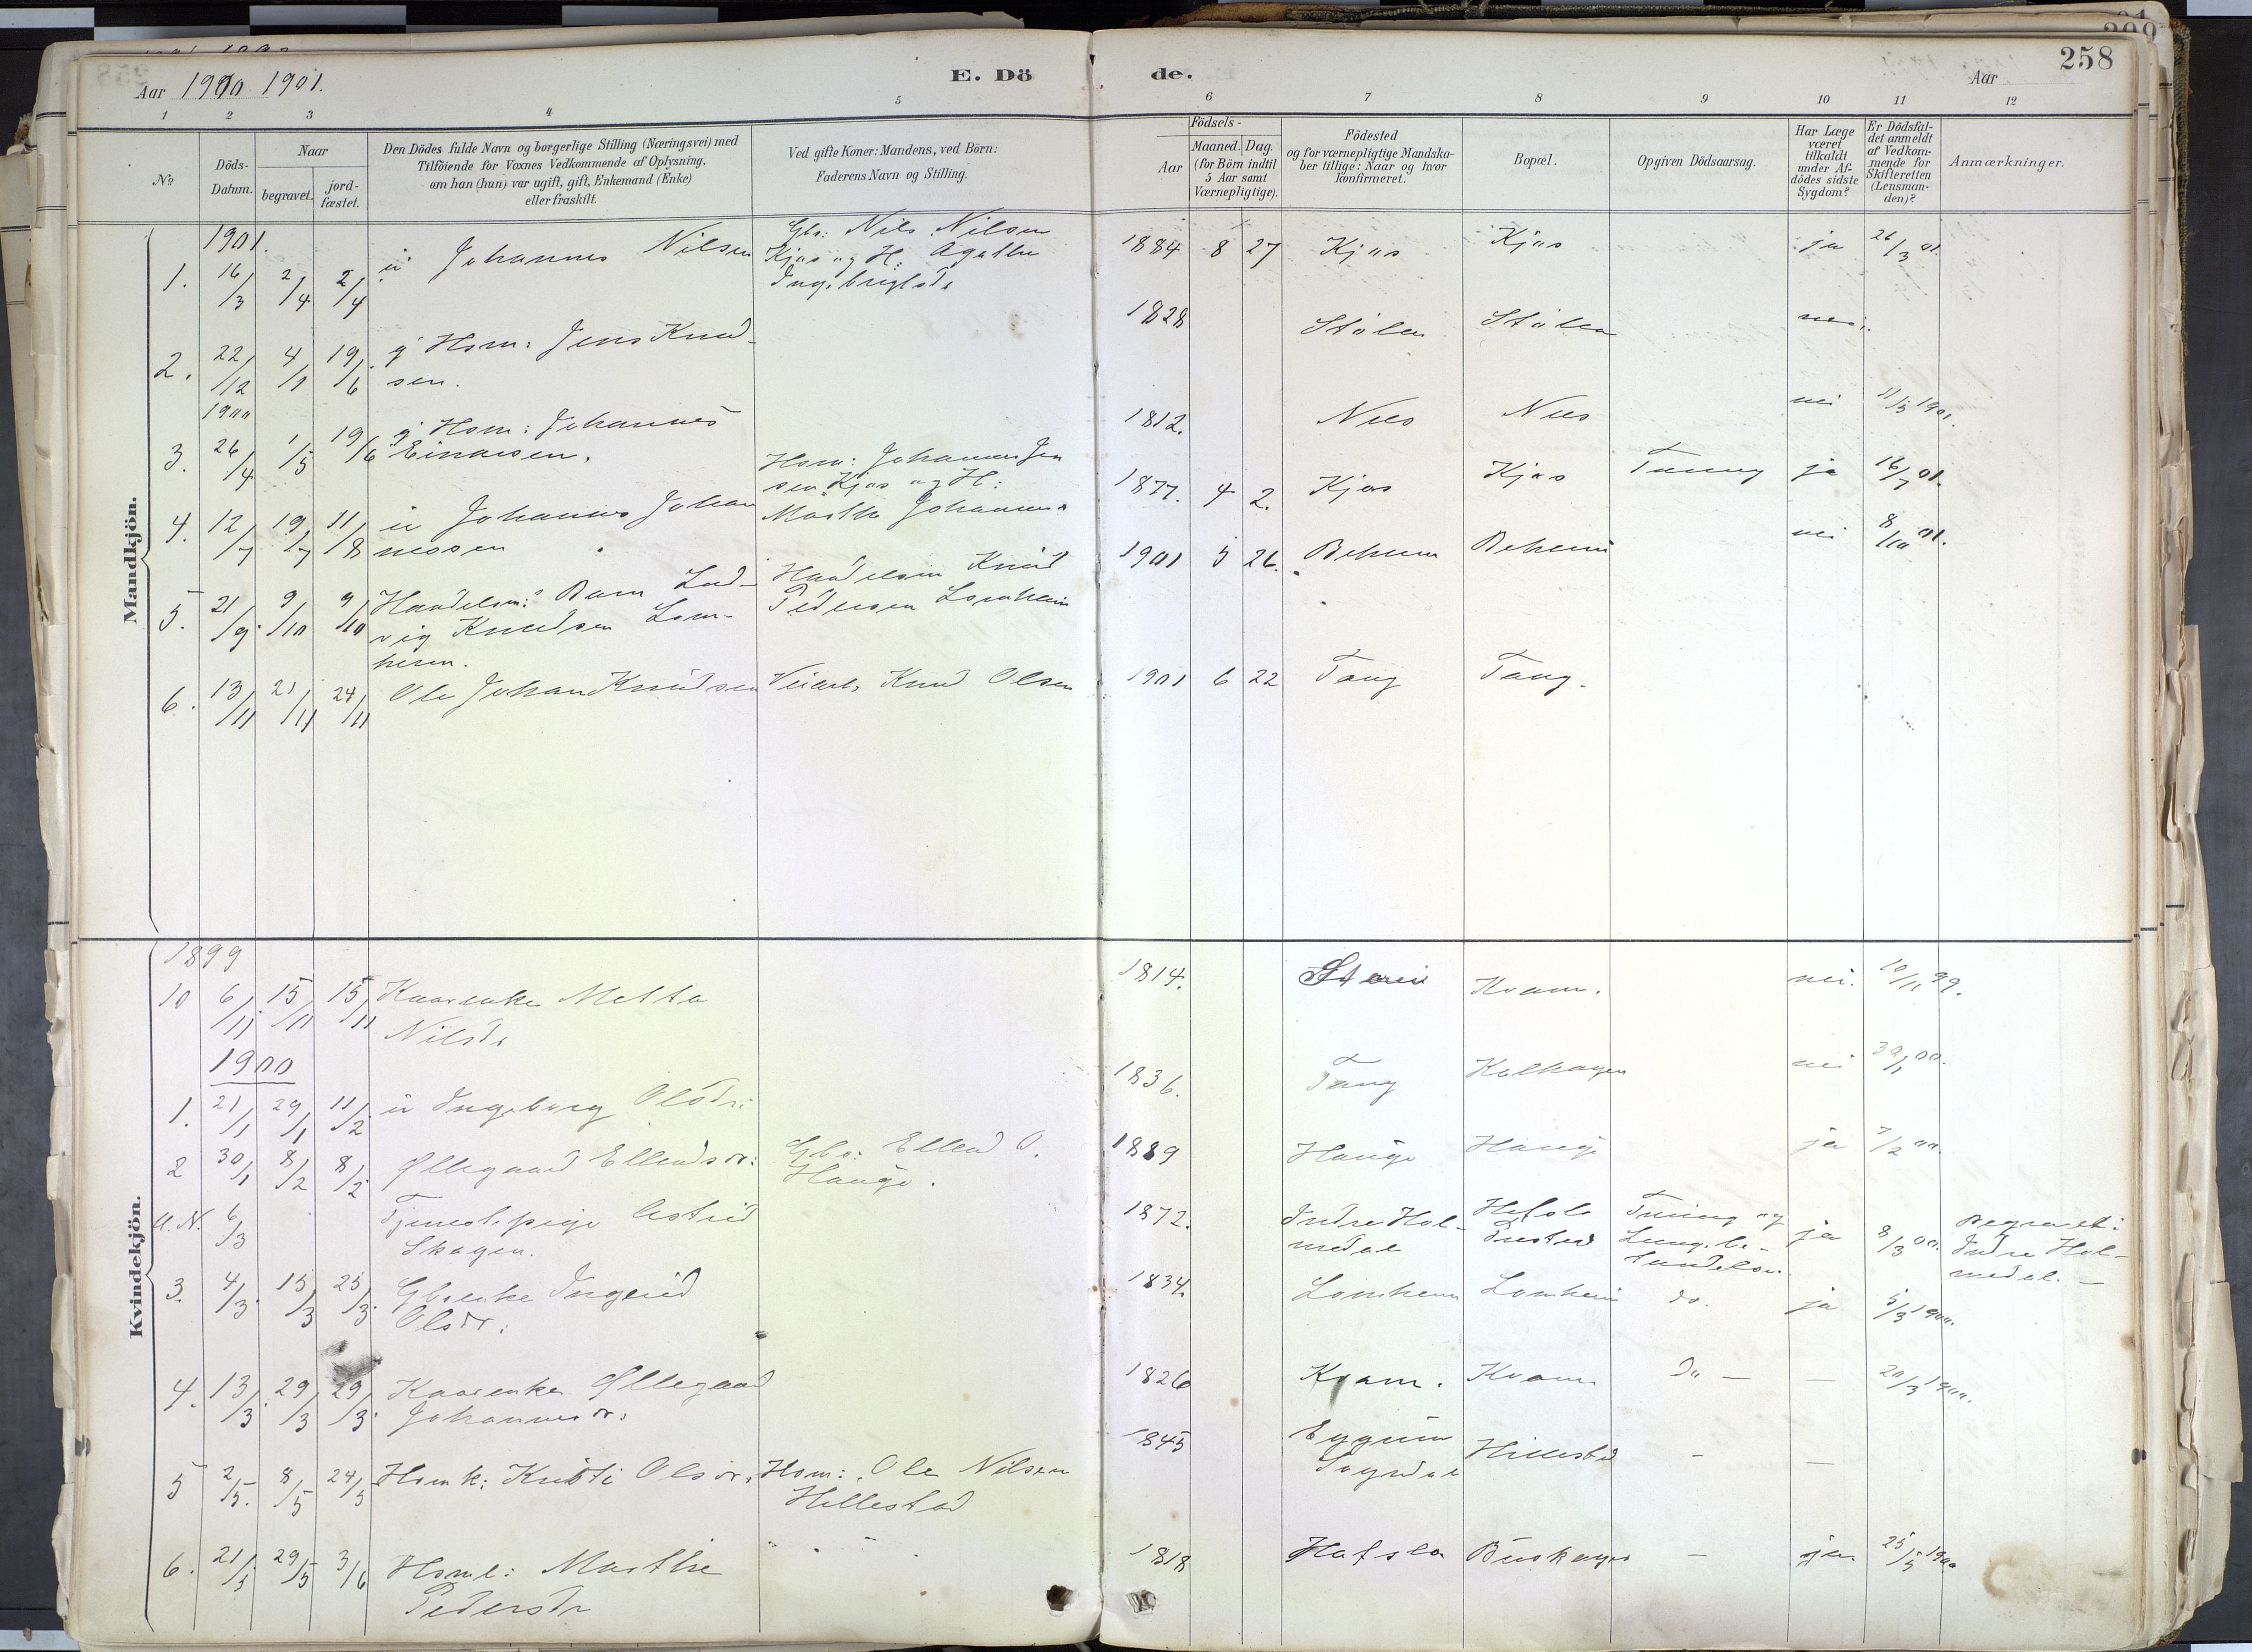 258
Aar 1900 1901.
E. Dö de.
Aar
1 2 3 4 5 6 7 8 9 10 11 12
No
Döds-
Datum.
Naar
begravet.
jord-
fæstet.
Den Dödes fulde Navn og borgerlige Stilling (Næringsvei) med
Tilföiende for Voxnes Vedkommende af Oplysning,
om han (hun) var ugift, gift, Enkemand (Enke)
eller fraskilt.
Ved gifte Koner: Mandens, ved Börn:
Faderens Navn og Stilling.
Födsels-
Aar
Maaned. Dag.
(for Börn indtil
5 Aar samt
Værnepligtige).
Födested
og for værnepligtige Mandska-
ber tillige: Naar og hvor
konfirmeret.
Bopæl.
Opgiven Dödsaarsag.
Har Læge
været
tilkaldt
under Af-
dödes sidste
Sygdom?
Er Dödsfal-
det anmeldt
af Vedkom-
mende for
Skifteretten
(Lensman-
den)?
Anmærkninger.
Mandkjön.
1901.
1. 16/3 2/4 2/4 u Johannes Nilsen
Gbr: Nils Nilsen
Kjøs og H: Agathe
Ingebrigtsdr
1884 8 27 Kjøs Kjøs ja 26/3 01.
2. 22/12 4/1 19/6 g Hsm: Jens Knud-
sen.
1828 Stølen Stølen nei.
1900
3. 26/4 1/5 19/6 g Hsm: Johannes
Einarsen.
1812. Nes Nes nei 11/5 1901.
4. 12/7 19/7 11/8 u Johannes Johan
nessen
Hsm: Johannes Jen
sen Kjøs og H:
Marthe Johannes
1877. 4 2. Kjøs Kjøs Tæring ja 16/7 01.
5. 21/9 9/10 9/10 Handelsm: Barn Lud-
vig Knudsen Lom-
heim.
Handelsm Knud
Pedersen Lomheim
1901 5 26. Beheim Beheim nei 8/10 01.
6. 13/11 21/11 24/11 Ole Johan Knudsen
Veiarb. Knud Olsen
1901 6 22 Tang Tang.
Kvindekjön.
1899
10 6/11 15/11 15/11 Kaarenke Metta
Nilsdr
1814. Kvam. nei. 10/11 99.
1900
1. 21/1 29/1 11/2 u Ingeborg Olsdr:
1836. Tang Kolhagen nei 30/1 00.
2 30/1 8/2 8/2 Øllegaard Ellendsdr:
Gbr: Ellend O.
Hauge.
1889 Hauge Hauge ja 7/2 00.
U.N. 6/3 Tjenestepige Astrid
Skagen.
1872. Indre Hol-
medal
Hafslo
Tæring og
Lunge be-
tændelse.
ja 8/3 00.
Begravet:
Indre Hol-
medal. —
3. 4/3 15/3 25/3 Gbrenke Ingerid
Olsdr:
1834. Lomheim Lomheim do. ja 5/3 1900.
4. 13/3 29/3 29/3 Kaarenke Øllegaard
Johannesdr:
1826 Kvam. Kvam do — — 20/3 1900.
5 2/5. 8/5 24/5 Hsmk: Kristi Olsdr.
Hsm: Ole Nilsen
Hillestad
1845 Sogndal Hillestad — —
6. 21/5 29/5 3/6 Hsml: Marthe
Pedersdr
1818 Hafslo ja 25/5 1900